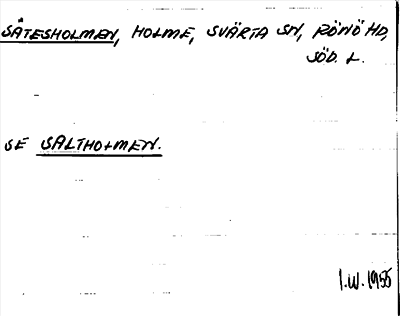 SÅTESHOLMEN, HOLME, SVÄRTA SN, RÖNÖ HD,
SÖD. L.
SE SALTHOLMEN.
I.W. 1955